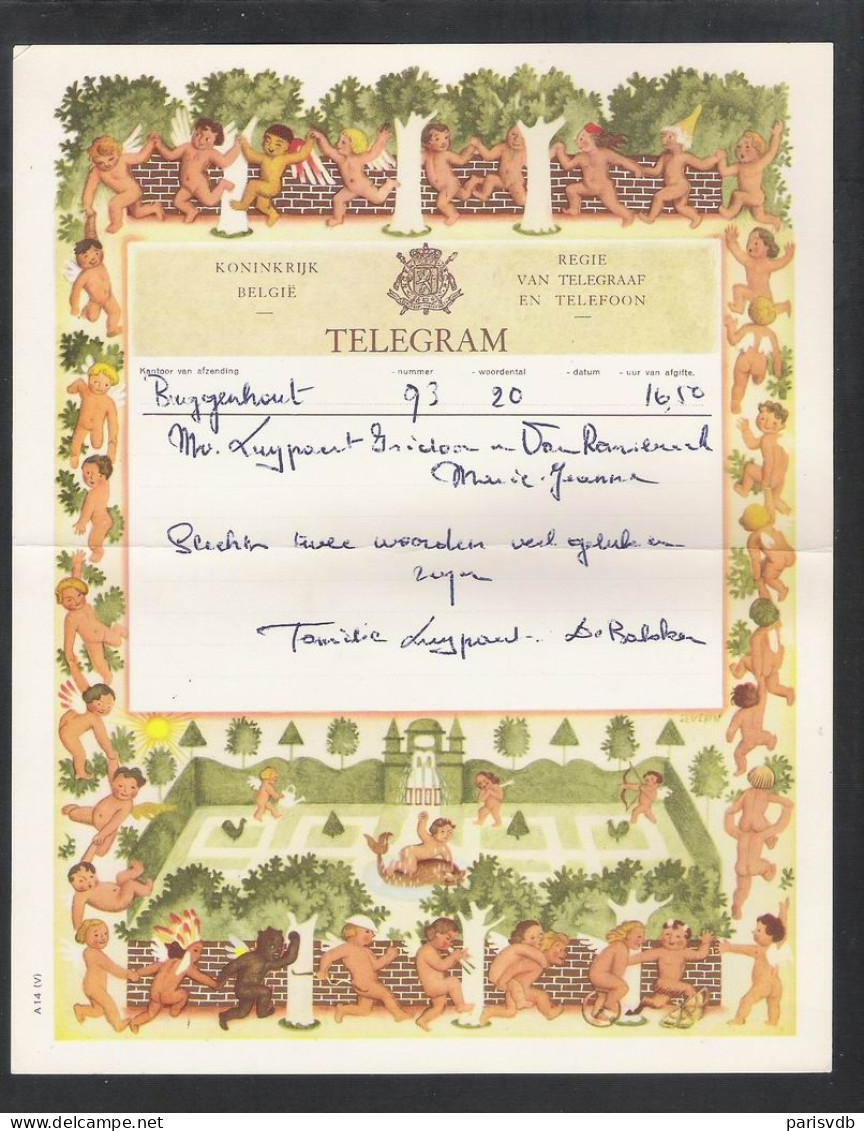 KONINKRIJK
BELGIË
REGIE
VAN TELEGRAAF
EN TELEFOON
TELEGRAM
Kantoor van afzending - nummer - woordental - datum - uur van afgifte.
Buggenhout 93 20 16,50
Mr. Luypaert en Van
Marie-Jeanne
Slechts twee woorden veel geluk en
zegen
Familie Luypaert -
SEVERIN
A 14 (V)
parisvdb